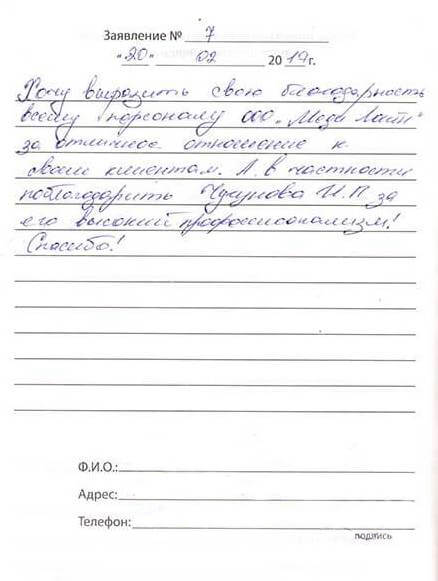 Заявление № 7
"20" 02 2019 г.
Хочу выразить свою благодарность
всему персоналу ООО „Меди Лайт"
за отличное отношение к
своим клиентам. А в частности
поблагодарить И.П. за
его высокий профессионализм!
Спасибо!
Ф.И.О.:
Адрес:
Телефон:
подпись